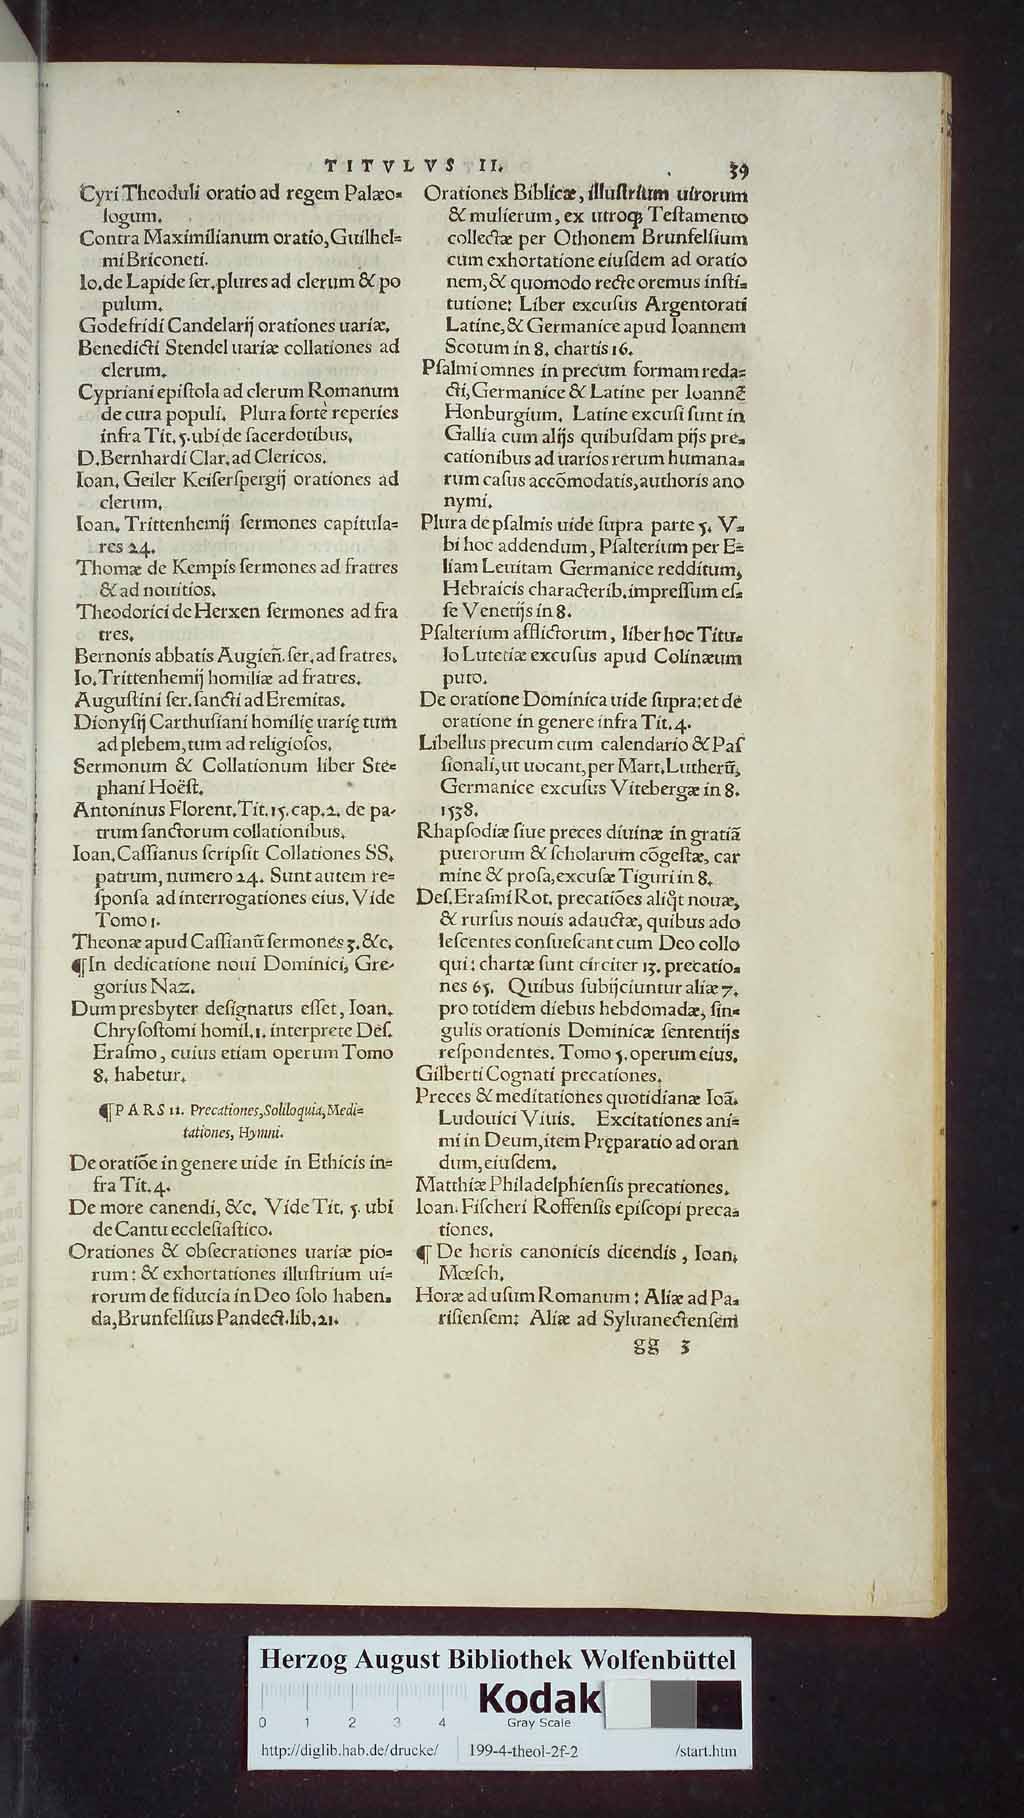 TITVLVS II.
39
Cyri Theoduli oratio ad regem Palæo=
logum.
Contra Maximilianum oratio, Guilhel=
mi Briconeti.
Io. de Lapide ſer. plures ad clerum & po
pulum.
Godefridi Candelarij orationes uariæ.
Benedicti Stendel uariæ collationes ad
clerum.
Cypriani epiſtola ad clerum Romanum
de cura populi. Plura fortè reperies
infra Tit. 5. ubi de ſacerdotibus.
D. Bernhardi Clar. ad Clericos.
Ioan. Geiler Keiſerſpergij orationes ad
clerum.
Ioan. Trittenhemij ſermones capitula=
res 24.
Thomæ de Kempis ſermones ad fratres
& ad nouitios.
Theodorici de Herxen ſermones ad fra
tres.
Bernonis abbatis Augieñ. ſer. ad fratres.
Io. Trittenhemij homiliæ ad fratres.
Auguſtini ſer. ſancti ad Eremitas.
Dionyſij Carthuſiani homilię uarię tum
ad plebem, tum ad religioſos.
Sermonum & Collationum liber Ste=
phani Hoëſt.
Antoninus Florent. Tit. 15. cap. 2. de pa-
trum ſanctorum collationibus.
Ioan. Caſſianus ſcripſit Collationes SS.
patrum, numero 24. Sunt autem re=
ſponſa ad interrogationes eius. Vide
Tomo 1.
Theonæ apud Caſſianũ ſermones 3. &c.
¶In dedicatione noui Dominici, Gre-
gorius Naz.
Dum presbyter deſignatus eſſet, Ioan.
Chryſoſtomi homil. 1. interprete Deſ.
Eraſmo, cuius etiam operum Tomo
8. habetur.
¶PARS II. Precationes, Soliloquia, Medi=
tationes, Hymni.
De oratiõe in genere uide in Ethicis in=
fra Tit. 4.
De more canendi, &c. Vide Tit. 5. ubi
de Cantu eccleſiaſtico.
Orationes & obſecrationes uariæ pio=
rum: & exhortationes illuſtrium ui=
rorum de fiducia in Deo ſolo haben=
da, Brunfelſius Pandect. lib. 21.
Orationes Biblicæ, illuſtrium uirorum
& mulierum, ex utroq; Teſtamento
collectæ per Othonem Brunfelſium
cum exhortatione eiuſdem ad oratio
nem, & quomodo recte oremus inſti=
tutione: Liber excuſus Argentorati
Latine, & Germanice apud Ioannem
Scotum in 8. chartis 16.
Pſalmi omnes in precum formam reda=
cti, Germanice & Latine per Ioannẽ
Honburgium. Latine excuſi ſunt in
Gallia cum alijs quibuſdam pijs pre=
cationibus ad uarios rerum humana=
rum caſus accõmodatis, authoris ano
nymi.
Plura de pſalmis uide ſupra parte 5. V=
bi hoc addendum, Pſalterium per E=
liam Leuitam Germanice redditum,
Hebraicis characterib. impreſſum eſ=
ſe Venetijs in 8.
Pſalterium afflictorum, liber hoc Titu=
lo Lutetiæ excuſus apud Colinæum
puto.
De oratione Dominica uide ſupra: et de
oratione in genere infra Tit. 4.
Libellus precum cum calendario & Paſ
ſionali, ut uocant, per Mart. Lutherũ,
Germanice excuſus Vitebergæ in 8.
1538.
Rhapſodiæ ſiue preces diuinæ in gratiã
puerorum & ſcholarum cõgeſtæ, car
mine & proſa, excuſæ Tiguri in 8.
Deſ. Eraſmi Rot. precatiões aliq̃t nouæ,
& rurſus nouis adauctæ, quibus ado
leſcentes conſueſcant cum Deo collo
qui: chartæ ſunt circiter 13. precatio=
nes 65. Quibus ſubijciuntur aliæ 7.
pro totidem diebus hebdomadæ, ſin=
gulis orationis Dominicæ ſententijs
reſpondentes. Tomo 5. operum eius.
Gilberti Cognati precationes.
Preces & meditationes quotidianæ Ioã.
Ludouici Viuis. Excitationes ani=
mi in Deum, item Pręparatio ad oran
dum, eiuſdem.
Matthiæ Philadelphienſis precationes.
Ioan. Fiſcheri Roffenſis epiſcopi preca=
tiones.
¶ De horis canonicis dicendis, Ioan.
Mœſch.
Horæ ad uſum Romanum: Aliæ ad Pa=
riſienſem: Aliæ ad Syluanectenſem
gg 3
Herzog August Bibliothek Wolfenbüttel
Kodak
Gray Scale
0 1 2 3 4
http://diglib.hab.de/drucke/ 199-4-theol-2f-2 /start.htm